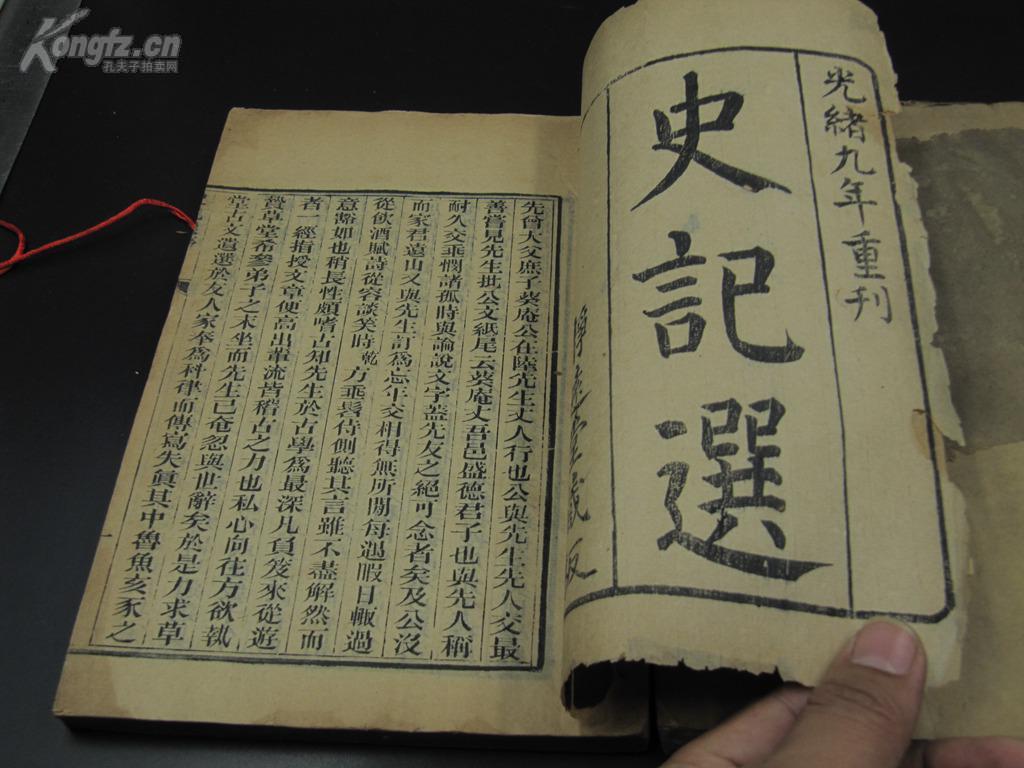 Kongfz.cn
孔夫子拍卖网
光緒九年重刊
史記選
堂藏板
先曾大父庶子葵庵公在陸先生丈人行也公與先生先人交最
善嘗見先生批公文紙尾云葵庵丈吾邑盛德君子也與先人稱
耐久交乖憫諸孤時與論說文字蓋先友之絕可念者矣及公沒
而家君遠山又與先生訂爲忘年交相得無所閒每遇暇日輒過
從飲酒賦詩從容談笑時乾方乖髫侍側聽其言雖不盡解然而
意豁如也稍長性頗嗜古知先生於古學爲最深凡負笈來從遊
者一經指授文章便高出輩流皆稽古之力也私心向往方欲執
贄草堂希參弟子之末坐而先生已奄忽與世辭矣於是力求草
堂古文遺選於友人家奉爲科律而傳寫失眞其中魯魚亥豕之